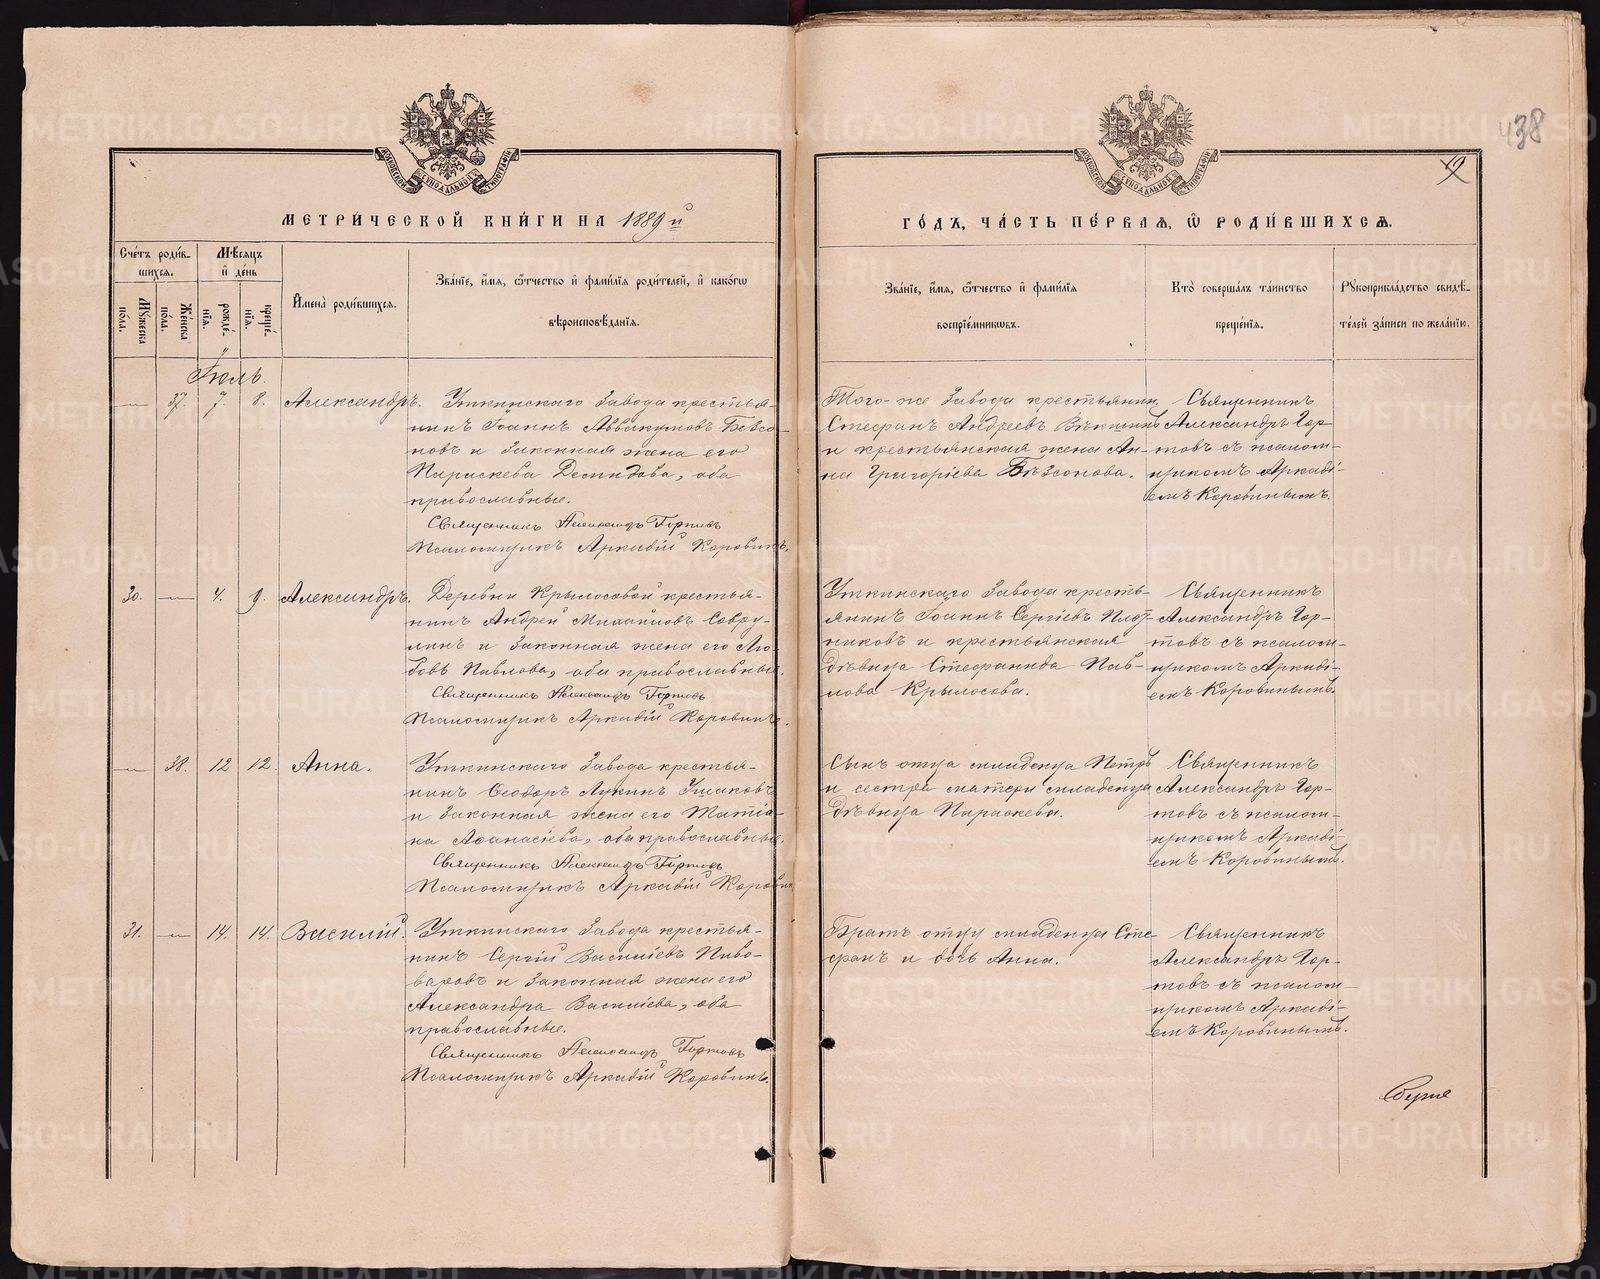 438
19
МЕТРИЧЕСКОЙ КНИГИ НА 1889 й
ГОДЪ, ЧАСТЬ ПЕРВАЯ, Ѡ РОДИВШИХСЯ.
Счетъ родив-
шихся.
Мѣсяцъ
и день
Мужеска
пола.
Женска
пола.
рожде-
нія.
креще-
нія.
Имена родившихся.
Званіе, имя, ѻтчество и фамилія родителей, и какогѡ
вѣроисповѣданія.
Званіе, имя, ѻтчество и фамилія
воспріемникѡвъ.
Кто совершалъ таинство
крещенія.
Рукоприкладство свидѣ-
телей записи по желанію.
Іюль.
— 37. 7. 8. Александръ.
Уткинскаго Завода крестья-
нинъ Іоаннъ Аввакумовъ Безсо-
новъ и законная жена его
Параскева Демидова, оба
православные.
Священникъ Александръ Гортовъ
Псаломщикъ Аркадій Коровинъ.
Того-же Завода крестьянин
Стефанъ Андреевъ
и крестьянская жена Ан-
на Григоріева Безсонова.
Священникъ
Александръ Гор-
товъ съ псалом-
щикомъ Аркаді-
емъ Коровинымъ.
30. — 4. 9. Александръ.
Деревни Крылосовой крестья-
нинъ Андрей Михайловъ Савру-
линъ и законная жена его Лю-
бовь Павлова, оба православные.
Священникъ Александръ Гортовъ
Псаломщикъ Аркадій Коровинъ.
Уткинскаго Завода кресть-
янинъ Іоаннъ Сергіевъ Плот-
никовъ и крестьянская
дѣвица Стефанида Пав-
лова Крылосова.
Священникъ
Александръ Гор-
товъ съ псалом-
щикомъ Аркаді-
емъ Коровинымъ.
— 38. 12 12. Анна.
Уткинскаго Завода крестья-
нинъ Ѳеодоръ Лукинъ Ушаковъ
и законная жена его Татіа-
на Аѳанасіева, оба православные.
Священникъ Александръ Гортовъ
Псаломщикъ Аркадій Коровин
Сынъ отца младенца Петръ
и сестра матери младенца
дѣвица Параскева.
Священникъ
Александръ Гор-
товъ съ псалом-
щикомъ Аркаді-
емъ Коровинымъ.
31. — 14. 14. Василій.
Уткинскаго Завода крестья-
нинъ Сергій Василіевъ Пиво-
варовъ и законная жена его
Александра Василіева, оба
православные.
Священникъ Александръ Гортовъ
Псаломщикъ Аркадій Коровинъ.
Братъ отцу младенца Сте-
фанъ и дочь Анна.
Священникъ
Александръ Гор-
товъ съ псалом-
щикомъ Аркаді-
емъ Коровинымъ.